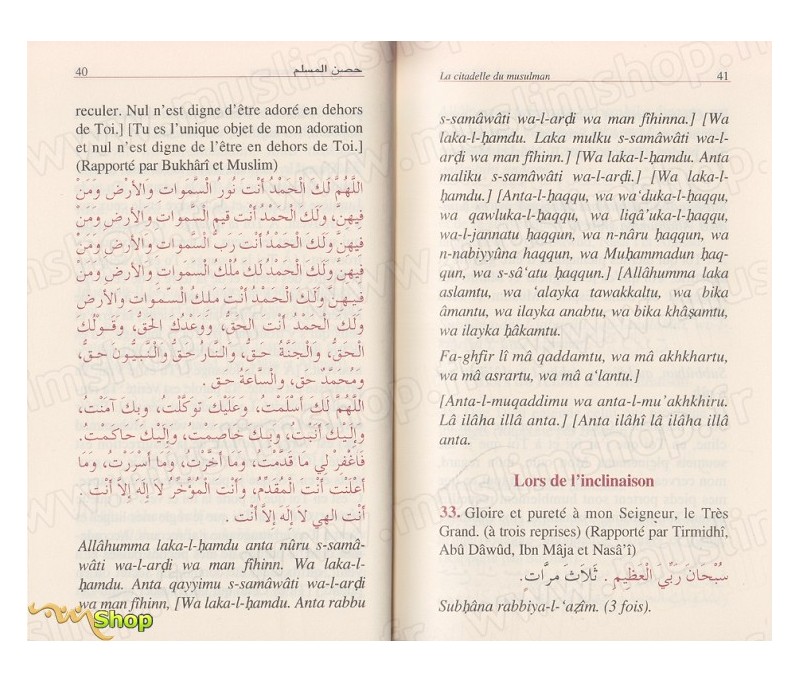 40
حصن المسلم
reculer. Nul n'est digne d'être adoré en dehors
de Toi.] [Tu es l'unique objet de mon adoration
et nul n'est digne de l'être en dehors de Toi.]
(Rapporté par Bukhârî et Muslim)
اللَّهُمَّ لَكَ الْحَمْدُ أَنْتَ نُورُ السَّمَوَاتِ وَالأَرْضِ وَمَنْ
فِيهِنَّ، وَلَكَ الْحَمْدُ أَنْتَ قَيِّمُ السَّمَوَاتِ وَالأَرْضِ وَمَنْ
فِيهِنَّ وَلَكَ الْحَمْدُ أَنْتَ رَبُّ السَّمَوَاتِ وَالأَرْضِ وَمَنْ
فِيهِنَّ وَلَكَ الْحَمْدُ لَكَ مُلْكُ السَّمَوَاتِ وَالأَرْضِ وَمَنْ
فِيهِنَّ وَلَكَ الْحَمْدُ أَنْتَ مَلِكُ السَّمَوَاتِ وَالأَرْضِ
وَلَكَ الْحَمْدُ أَنْتَ الْحَقُّ، وَوَعْدُكَ الْحَقُّ، وَقَوْلُكَ
الْحَقُّ، وَالْجَنَّةُ حَقٌّ، وَالنَّارُ حَقٌّ وَالنَّبِيُّونَ حَقٌّ،
وَمُحَمَّدٌ حَق، وَالسَّاعَةُ حَق .
اللَّهُمَّ لَكَ أَسْلَمْتُ، وَعَلَيْكَ تَوَكَّلْتُ، وَبِكَ آمَنْتُ،
وَإِلَيْكَ أَنَبْتُ، وَبِكَ خَاصَمْتُ، وَإِلَيْكَ حَاكَمْتُ.
فَاغْفِرْ لِي مَا قَدَّمْتُ، وَمَا أَخَّرْتُ، وَمَا أَسْرَرْتُ، وَمَا
أَعْلَنْتُ أَنْتَ الْمُقَدِّمُ، وَأَنْتَ الْمُؤَخِّرُ لاَ إِلَهَ إِلاَّ أَنْتَ .
أَنْتَ إِلهِي لاَ إِلَهَ إِلاَّ أَنْتَ .
Allâhumma laka-l-ḥamdu anta nûru s-samâ-
wâti wa-l-arḍi wa man fîhinn. Wa laka-l-
ḥamdu. Anta qayyimu s-samâwâti wa-l-arḍi
wa man fîhinn, [Wa laka-l-ḥamdu. Anta rabbu
La citadelle du musulman
41
s-samâwâti wa-l-arḍi wa man fîhinna.] [Wa
laka-l-ḥamdu. Laka mulku s-samâwâti wa-l-
arḍi wa man fîhinn.] [Wa laka-l-ḥamdu. Anta
maliku s-samâwâti wa-l-arḍi.] [Wa laka-l-
ḥamdu.] [Anta-l-ḥaqqu, wa wa'duka-l-ḥaqqu,
wa qawluka-l-ḥaqqu, wa liqâ'uka-l-ḥaqqu,
wa-l-jannatu ḥaqqun, wa n-nâru ḥaqqun, wa
n-nabiyyûna ḥaqqun, wa Muḥammadun ḥaq-
qun, wa s-sâ'atu ḥaqqun.] [Allâhumma laka
aslamtu, wa 'alayka tawakkaltu, wa bika
âmantu, wa ilayka anabtu, wa bika khâṣamtu,
wa ilayka ḥâkamtu.
Fa-ghfir lî mâ qaddamtu, wa mâ akhkhartu,
wa mâ asrartu, wa mâ a'lantu.]
[Anta-l-muqaddimu wa anta-l-mu'akhkhiru.
Lâ ilâha illâ anta.] [Anta ilâhî lâ ilâha illâ
anta.
Lors de l'inclinaison
33. Gloire et pureté à mon Seigneur, le Très
Grand. (à trois reprises) (Rapporté par Tirmidhî,
Abû Dâwûd, Ibn Mâja et Nasâ'î)
سُبْحَانَ رَبِّيَ الْعَظِيمِ . ثَلاَثَ مَرَّاتٍ.
Subḥâna rabbiya-l-'aẓîm. (3 fois).
Shop
www.muslimshop.fr